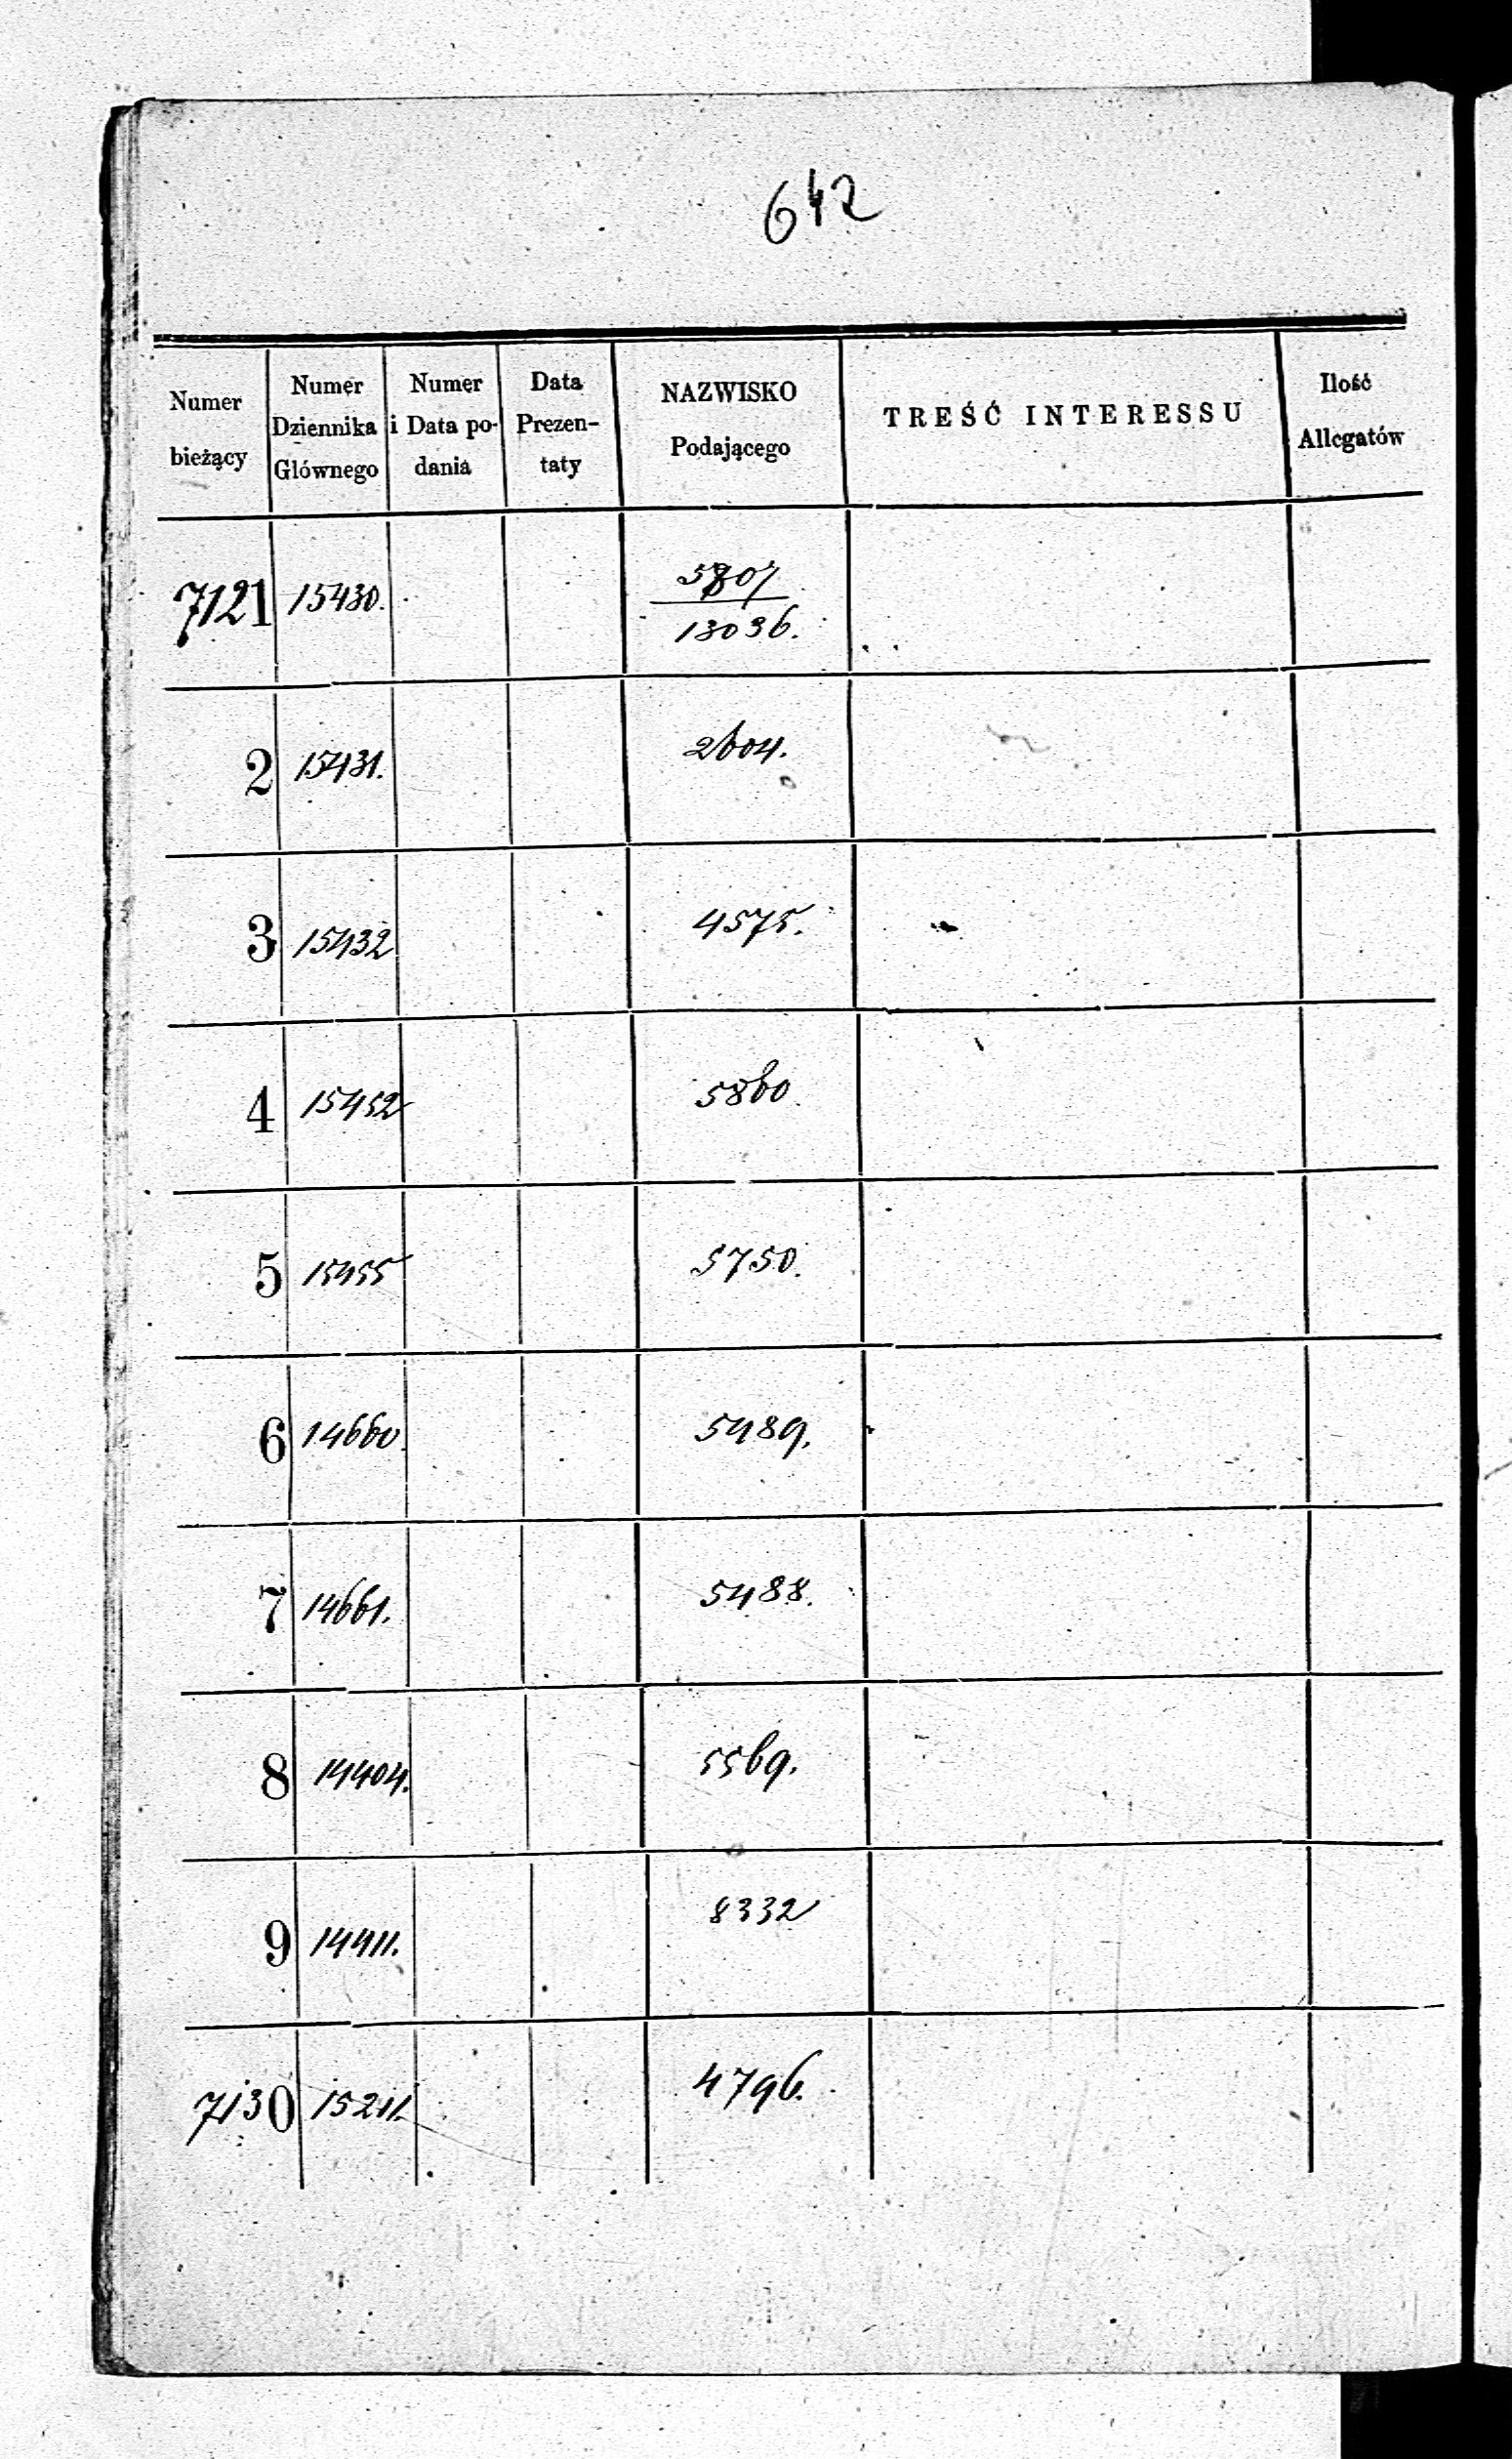 642
Numer bieżący | Numer Dziennika Głównego | Numer i Data podania | Data Prezentaty | NAZWISKO Podającego | TREŚĆ INTERESSU | Ilość Allegatów
7121 15430. 5807
13036.
2 15431. 2604.
3 15432 4575.
4 15452 5860.
5 15455 5750.
6 14660. 5489.
7 14661. 5488.
8 14404. 5569.
9 14411. 8332
7130 15211. 4796.